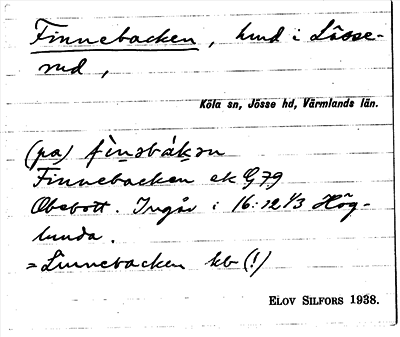 Finnebacken, hmd i Lösse-
rud,
Köla sn, Jösse hd, Värmlands län.
(pa) fìnəbákən
Finnebacken ek G 79
Obebott. Ingår i 16:12 1/3 Hög-
lunda.
= Linnebacken kb (!)
ELOV SILFORS 1938.